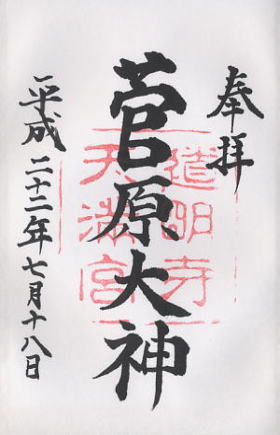 奉拝
菅原大神
道明寺
天満宮
平成二十二年七月十八日